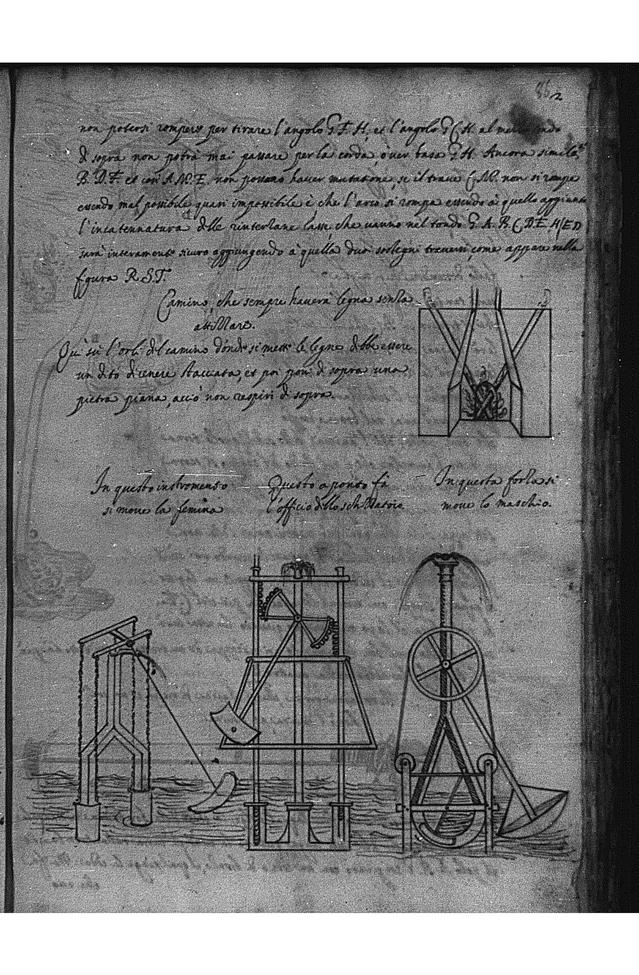 86 2
non potersi rompers per tirare l'angolo G F. H. et l'angolo G C H. al
di sopra non potrà mai passare per la corda, over basa G H. Ancora
B. D. F. et con A. M. E. non possano haver mutatione, se il trave C M. non si rompe
essendo mel possibile quasi impossibile è che l'arco si rompa essendo à quello
l'incatennatura delle che vanno nel tondo G. A. B. C D. E. H
sarà interamente sicuro aggiungendo à quella duoi sostegni traversi, come appare nella
figura R. S. T.
Camino che sempre haverà legna senza
Qui sù l'orli del camino donde si mette le legne debbe essere
un dito di cenere staccata, et poi poni di sopra una
pietra piana, acciò non respiri di sopra.
In questo instromento
si move la femina
Questo aponto fà
l'officio dello
In questa forza si
move lo maschio.